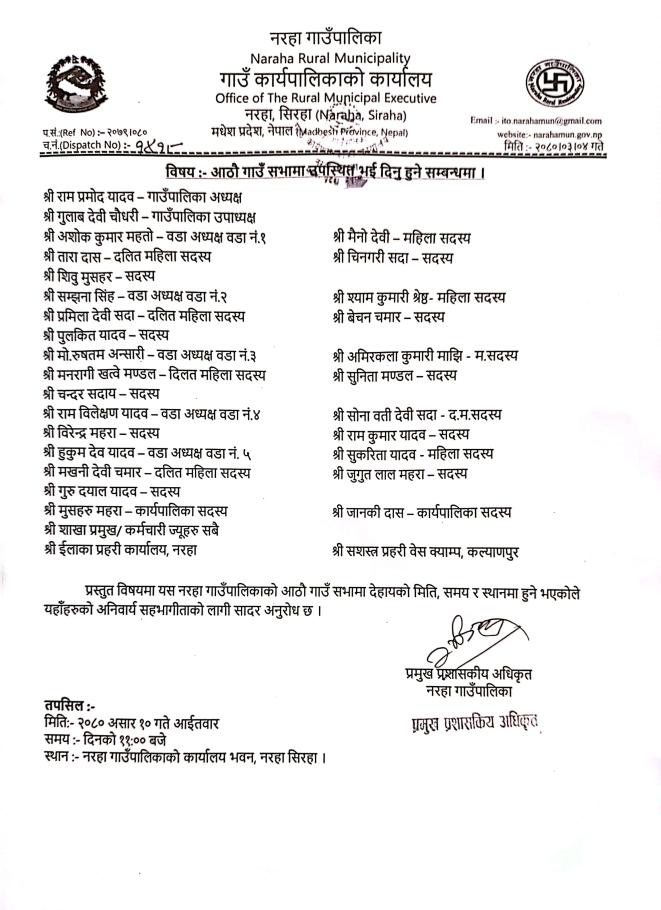 नरहा गाउँपालिका
Naraha Rural Municipality
गाउँ कार्यपालिकाको कार्यालय
Office of The Rural Municipal Executive
नरहा, सिरहा (Naraha, Siraha)
मधेश प्रदेश, नेपाल (Madhesh Province, Nepal)
Email :- ito.narahamun@gmail.com
website:- narahamun.gov.np
प.सं.(Ref No) :– २०७९।०८०
च.नं.(Dispatch No) :-
मिति :- २०८०।०३।०४ गते
विषय :- आठौ गाउँ सभामा उपस्थित भई दिनु हुने सम्बन्धमा ।
श्री राम प्रमोद यादव – गाउँपालिका अध्यक्ष
श्री गुलाब देवी चौधरी – गाउँपालिका उपाध्यक्ष
श्री अशोक कुमार महतो – वडा अध्यक्ष वडा नं.१ श्री मैनो देवी – महिला सदस्य
श्री तारा दास – दलित महिला सदस्य श्री चिनगरी सदा – सदस्य
श्री शिवु मुसहर – सदस्य
श्री सम्झना सिंह – वडा अध्यक्ष वडा नं.२ श्री श्याम कुमारी श्रेष्ठ- महिला सदस्य
श्री प्रमिला देवी सदा – दलित महिला सदस्य श्री बेचन चमार – सदस्य
श्री पुलकित यादव – सदस्य
श्री मो.रुषतम अन्सारी – वडा अध्यक्ष वडा नं.३ श्री अमिरकला कुमारी माझि - म.सदस्य
श्री मनरागी खत्वे मण्डल – दिलत महिला सदस्य श्री सुनिता मण्डल – सदस्य
श्री चन्दर सदाय – सदस्य
श्री राम विलेक्षण यादव – वडा अध्यक्ष वडा नं.४ श्री सोना वती देवी सदा - द.म.सदस्य
श्री विरेन्द्र महरा – सदस्य श्री राम कुमार यादव – सदस्य
श्री हुकुम देव यादव – वडा अध्यक्ष वडा नं. ५ श्री सुकरिता यादव - महिला सदस्य
श्री मखनी देवी चमार – दलित महिला सदस्य श्री जुगुत लाल महरा – सदस्य
श्री गुरु दयाल यादव – सदस्य
श्री मुसहरु महरा – कार्यपालिका सदस्य श्री जानकी दास – कार्यपालिका सदस्य
श्री शाखा प्रमुख/ कर्मचारी ज्यूहरु सबै
श्री ईलाका प्रहरी कार्यालय, नरहा श्री सशस्त्र प्रहरी वेस क्याम्प, कल्याणपुर
प्रस्तुत विषयमा यस नरहा गाउँपालिकाको आठौ गाउँ सभामा देहायको मिति, समय र स्थानमा हुने भएकोले
यहाँहरुको अनिवार्य सहभागीताको लागी सादर अनुरोध छ ।
प्रमुख प्रशासकीय अधिकृत
नरहा गाउँपालिका
प्रमुख प्रशासकिय अधिकृत
तपसिल :-
मिति:- २०८० असार १० गते आईतवार
समय :- दिनको ११:०० बजे
स्थान :- नरहा गाउँपालिकाको कार्यालय भवन, नरहा सिरहा ।